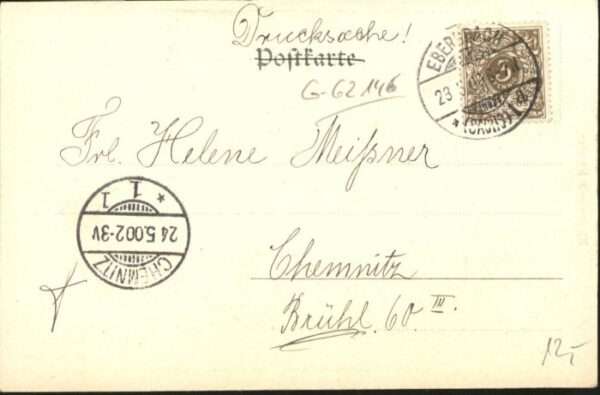 Drucksache!
Postkarte
G-62146
EBERSBACH
23
(SACHS)
3
Frl. Helene Meißner
* 1 1
24.5.00.2-3V
CHEMNITZ
Chemnitz
Brühl. 60 III.
12,-